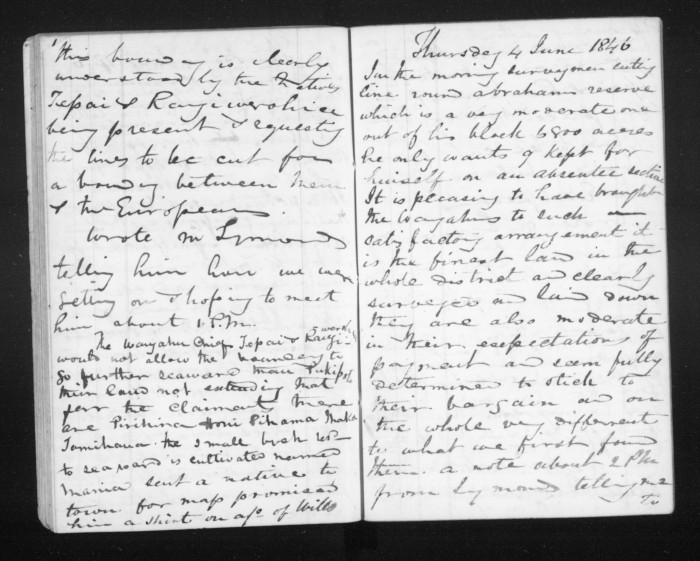 This boundy is clearly
understood by the Natives
Tepai & Rangiwerohiea
being present & requesting
the lines to be cut for
a boundy between them
& the Europeans.
wrote Mr Symonds
telling him how we were
getting on & hoping to meet
him about 1 P.M.
The Wangahu Chiefs Tepai &
would not allow the boundary to
go further seaward than Pukipoto
their land not extending that
far the Claimants there
are Pirihina Honi Pihama
Tamihana the small bush
to seaward is cultivated named
Maraia sent a native to
town for map promised
him a shirt on a/c of Wills
Thursday 4 June 1846
In the morning surveymen cutting
line round abrahams reserve
which is a very moderate one
out of his block 5800 acres
he only wants 9 kept for
himself on an absentee section
It is pleasing to have brought
the Wangahus to such an
satisfactory arrangement it
is the finest land in the
whole district and clearly
surveyed and laid down
they are also moderate
in their expectations of
payment and seem fully
determined to stick to
their bargain and on
the whole very different
to what we first found
them. a note about 2 PM
from Symonds telling me
to